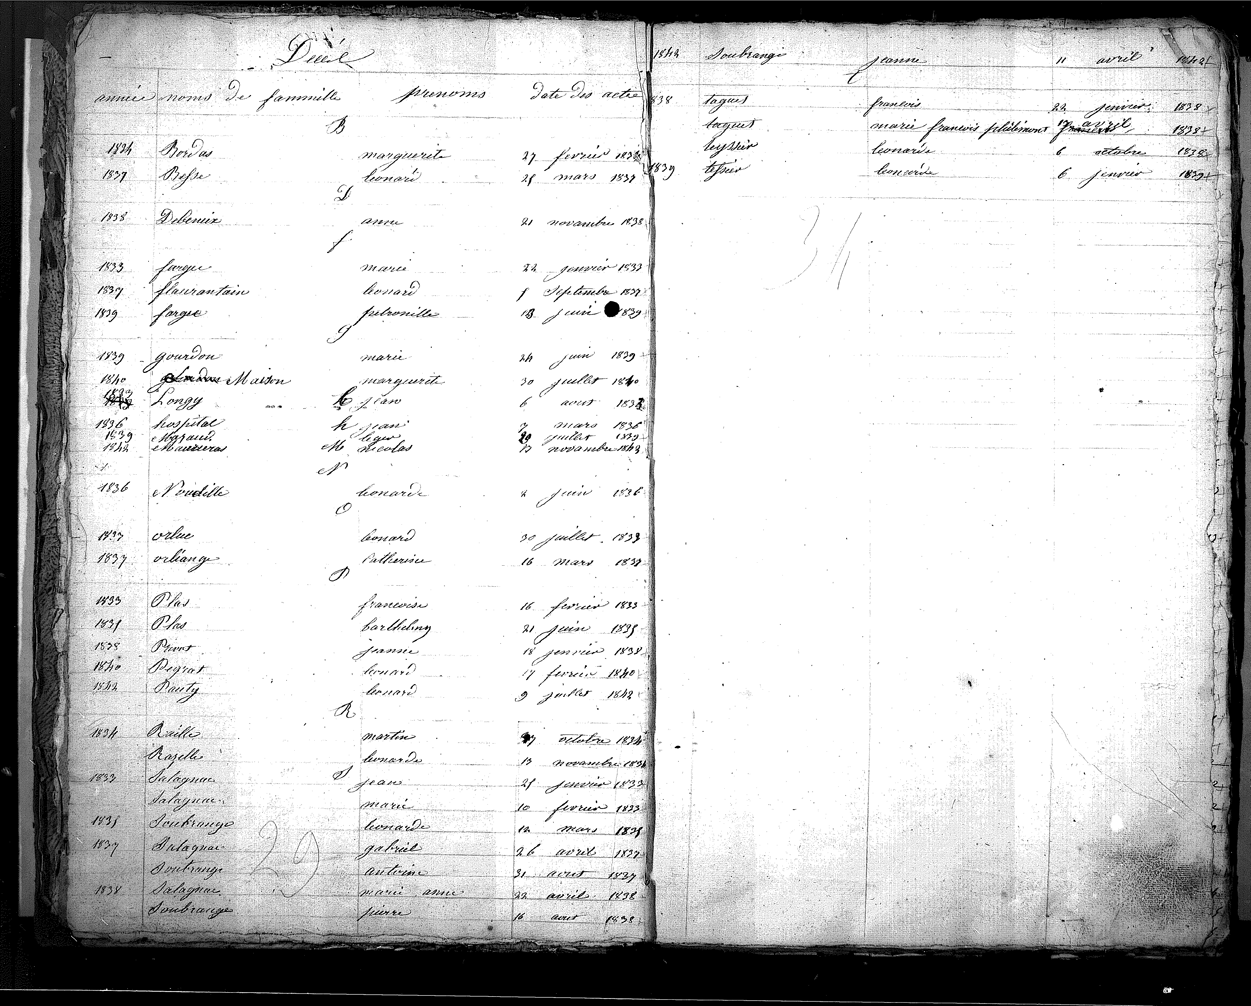 Décès
année noms de fammille prenoms date des acte
B
1834 Bordas marguerite 27 fevrier 1834
1837 Besse leonard 25 mars 1837
D
1838 Debernix anne 21 novambre 1838
f
1833 farge marie 22 janvier 1833
1837 fleurantain leonard 5 Septembre 1837
1839 farge petronille 18 juin 1839
g
1839 gourdon marie 24 juin 1839
1840 Maison marguerite 30 juillet 1840
1833 Longy L jean 6 aout 1833
1836 hospital h jean 7 mars 1836
1839 Magraud leger 20 juillet 1839
1842 Manieuras M nicolas 13 novambre 1842
N
1836 Novelille leonarde 2 juin 1836
O
1833 orluc leonard 30 juillet 1833
1837 orliange Catherine 16 mars 1837
P
1833 Plas francoise 16 fevrier 1833
1835 Plas barthelmy 21 juin 1835
1838 Privat jeanne 18 janvier 1838
1840 Pegrat leonard 17 fevrier 1840
1842 Pauty leonard 9 juillet 1842
R
1834 Raille martin 27 octobre 1834
Razelle leonarde 13 novambre 1834
S
1833 Salagnac jean 25 janvier 1833
Salagnac marie 10 fevrier 1833
1835 Soubrange leonarde 12 mars 1835
1837 Salagnac gabriel 26 avril 1837
Soubrange antoine 31 aout 1837
1838 Salagnac marie anne 22 avril 1838
Soubrange pierre 16 aout 1838
29
1842 Soubrange jeanne 11 avril 1842
1838 taguet francois 22 janvier 1838
taguet marie francois 17 avril 1838
teyssier leonarde 6 octobre 1838
1839 tessier leonarde 6 janvier 1839
34